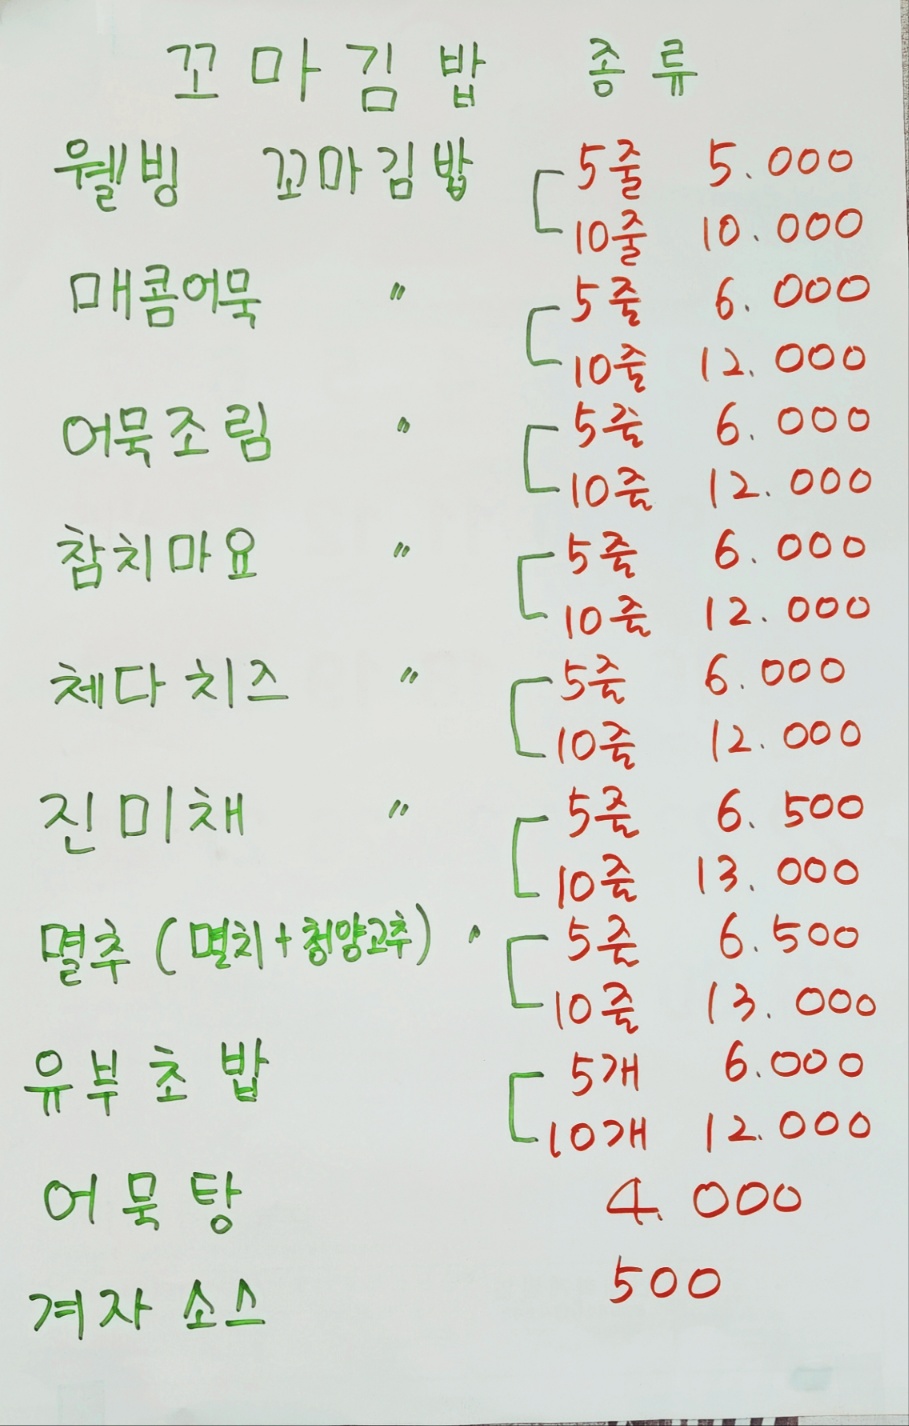 꼬마김밥 종류
웰빙 꼬마김밥 5줄 5.000
10줄 10.000
매콤어묵 〃 5줄 6.000
10줄 12.000
어묵조림 〃 5줄 6.000
10줄 12.000
참치마요 〃 5줄 6.000
10줄 12.000
체다치즈 〃 5줄 6.000
10줄 12.000
진미채 〃 5줄 6.500
10줄 13.000
멸추 (멸치+청양고추) 〃 5줄 6.500
10줄 13.000
유부초밥 5개 6.000
10개 12.000
어묵탕 4.000
겨자소스 500